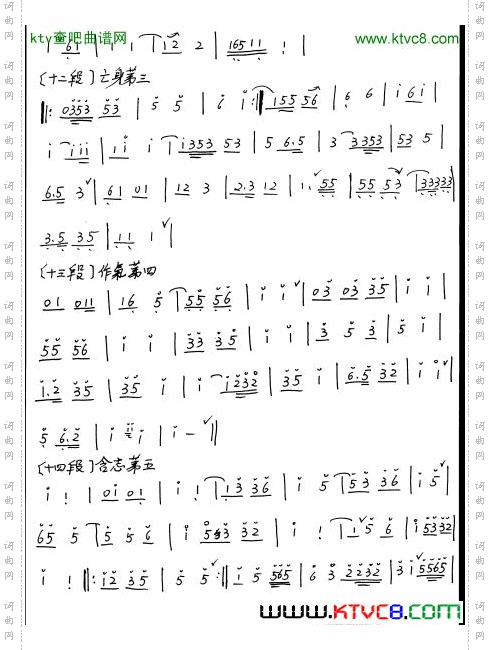 kty 查吧曲谱网 www.ktvc8.com
| 61 | i i | i2 2 | 165 11 ! |
〔十二段〕亡身第三
‖: 0353 53 | 5 5 | i i :‖ 155 56 | 6 6 | i 6 i |
i iii | 1i i | i353 53 | 5 6.5 | 3 3353 | 53 5 |
6.5 3 | 61 01 | 12 3 | 2.3 12 | 1. 55 | 55 53 | 33333 |
3.5 35 | 11 1 |
〔十三段〕作氣第四
01 011 | 16 5 | 55 56 | i i | 03 03 35 | i i |
55 56 | i i | 33 35 | i i | 3 5 3 | 5 i |
i.2 35 | 35 i | i i232 | 35 i | 6.5 32 | i i |
5 6.2 | i ii i | i – ‖
〔十四段〕含志第五
i ! | 0i 01 | i ! | 13 36 | i 5 | 53 36 | i 5 |
65 5 | 5 5 6 | i 553 32 | i ! | 1 5 6 | i 5332 |
i ! ‖: i2 35 | 5 5 :‖ i 5 565 | 6 3 2232 | 3 i 5565 |
www.KTVC8.com
词曲网